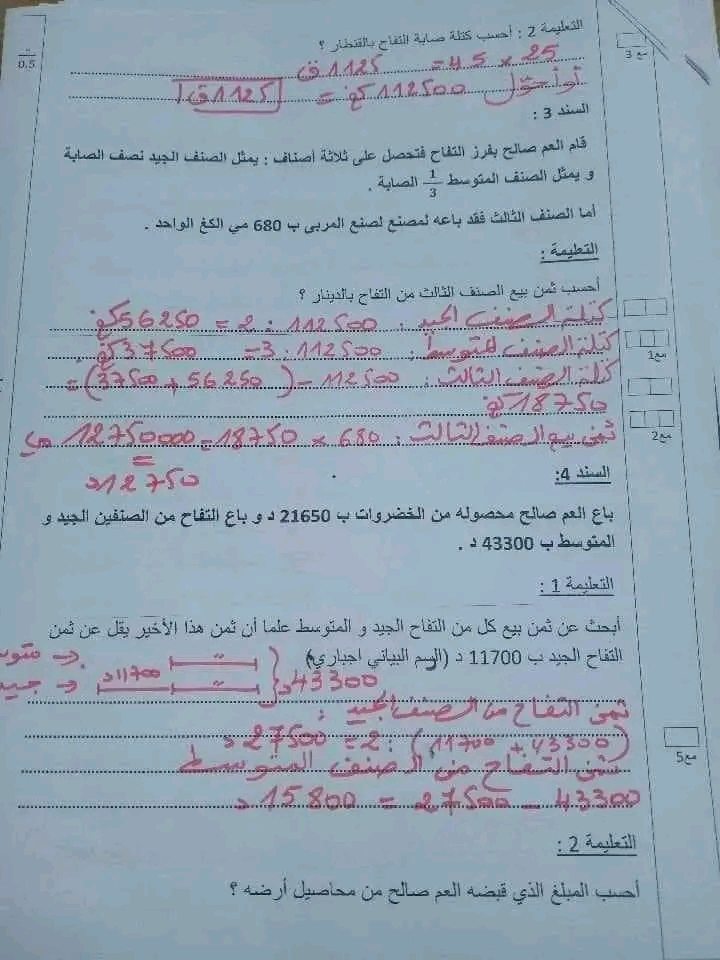 التعليمة 2 : أحسب كتلة صابة التفاح بالقنطار ؟
25 × 45 = 1125 ق
أو أحوّل 112500 كغ = 1125 ق
0.5
مع 3
السند 3 :
قام العم صالح بفرز التفاح فتحصل على ثلاثة أصناف : يمثل الصنف الجيد نصف الصابة
و يمثل الصنف المتوسط 1/3 الصابة .
أما الصنف الثالث فقد باعه لمصنع لصنع المربى ب 680 مي الكغ الواحد .
التعليمة :
أحسب ثمن بيع الصنف الثالث من التفاح بالدينار ؟
كتلة الصنف الجيد : 112500 : 2 = 56250 كغ
كتلة الصنف المتوسط : 112500 : 3 = 37500 كغ .
مع1
كتلة الصنف الثالث : 112500 - (56250 + 37500) =
18750 كغ
ثمن بيع الصنف الثالث : 680 × 18750 = 12750000 مي
مع2
=
12750 د
السند 4:
باع العم صالح محصوله من الخضروات ب 21650 د و باع التفاح من الصنفين الجيد و
المتوسط ب 43300 د .
التعليمة 1 :
أبحث عن ثمن بيع كل من التفاح الجيد و المتوسط علما أن ثمن هذا الأخير يقل عن ثمن
التفاح الجيد ب 11700 د (الرسم البياني اجباري)
11700 د
43300 د
ثمن التفاح من الصنف الجيد :
(43300 + 11700) : 2 = 27500 د
مع5
ثمن التفاح من الصنف المتوسط
43300 - 27500 = 15800 د
التعليمة 2 :
أحسب المبلغ الذي قبضه العم صالح من محاصيل أرضه ؟